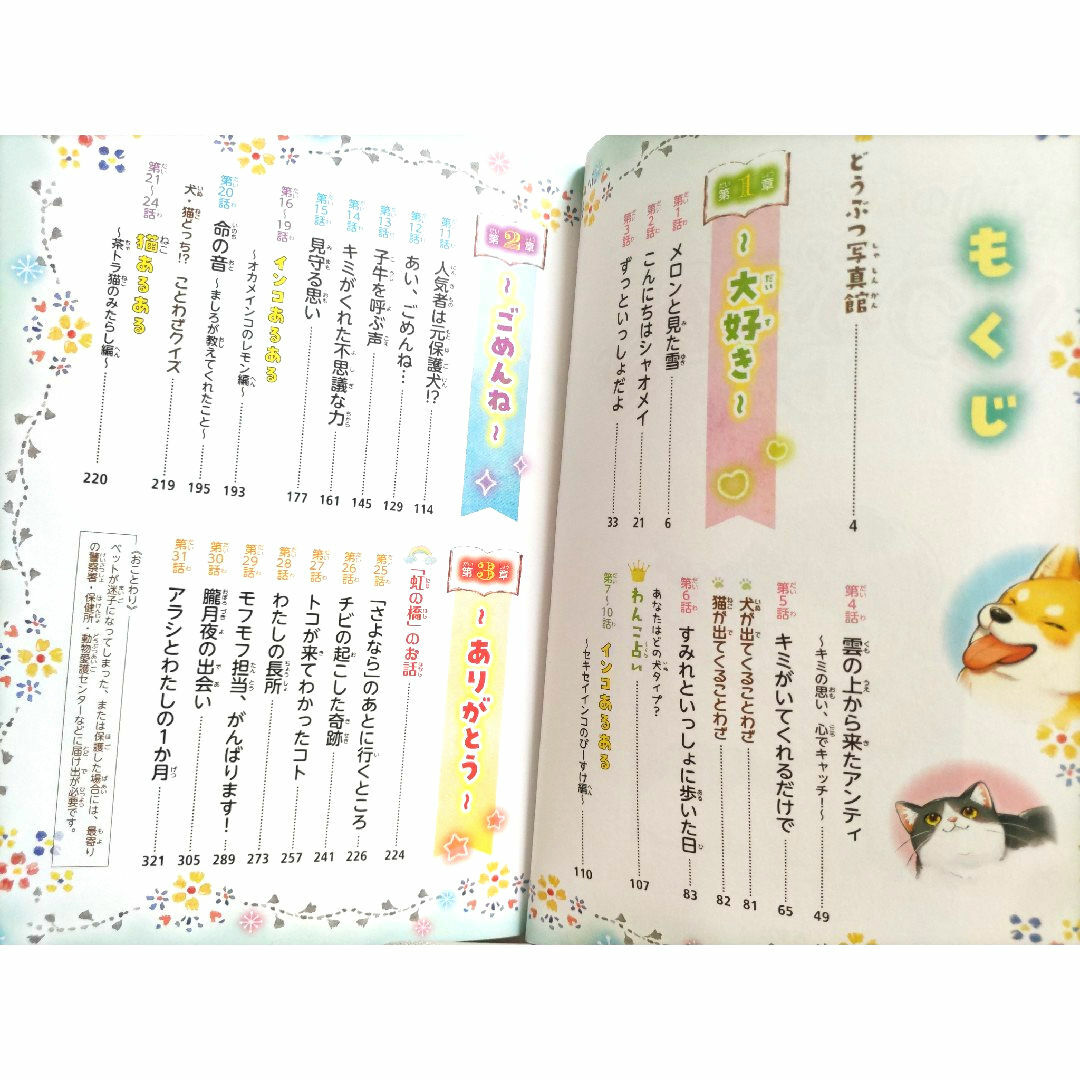 もくじ
どうぶつ写真館 4
第1章
～大好き～
第1話 メロンと見た雪 6
第2話 こんにちはシャオメイ 21
第3話 ずっといっしょだよ 33
第4話 雲の上から来たアンティ
～キミの思い、心でキャッチ！～ 49
第5話 キミがいてくれるだけで 65
犬が出てくることわざ 81
猫が出てくることわざ 82
第6話 すみれといっしょに歩いた日 83
わんこ占い
あなたはどの犬タイプ？ 107
第7～10話 インコあるある
～セキセイインコのぴーすけ編～ 110
第2章
～ごめんね～
第11話 人気者は元保護犬!? 114
第12話 あい、ごめんね… 129
第13話 子牛を呼ぶ声 145
第14話 キミがくれた不思議な力 161
第15話 見守る思い 177
第16～19話 インコあるある
～オカメインコのレモン編～ 193
第20話 命の音 ～ましろが教えてくれたこと～ 195
犬・猫どっち!? ことわざクイズ 219
第21～24話 猫あるある
～茶トラ猫のみたらし編～ 220
第3章
～ありがとう～
「虹の橋」のお話 224
第25話 「さよなら」のあとに行くところ 226
第26話 チビの起こした奇跡 241
第27話 トコが来てわかったコト 257
第28話 わたしの長所 273
第29話 モフモフ担当、がんばります！ 289
第30話 朧月夜の出会い 305
第31話 アラシとわたしの1か月 321
《おことわり》
ペットが迷子になってしまった、または保護した場合には、最寄り
の警察署・保健所・動物愛護センターなどに届け出が必要です。